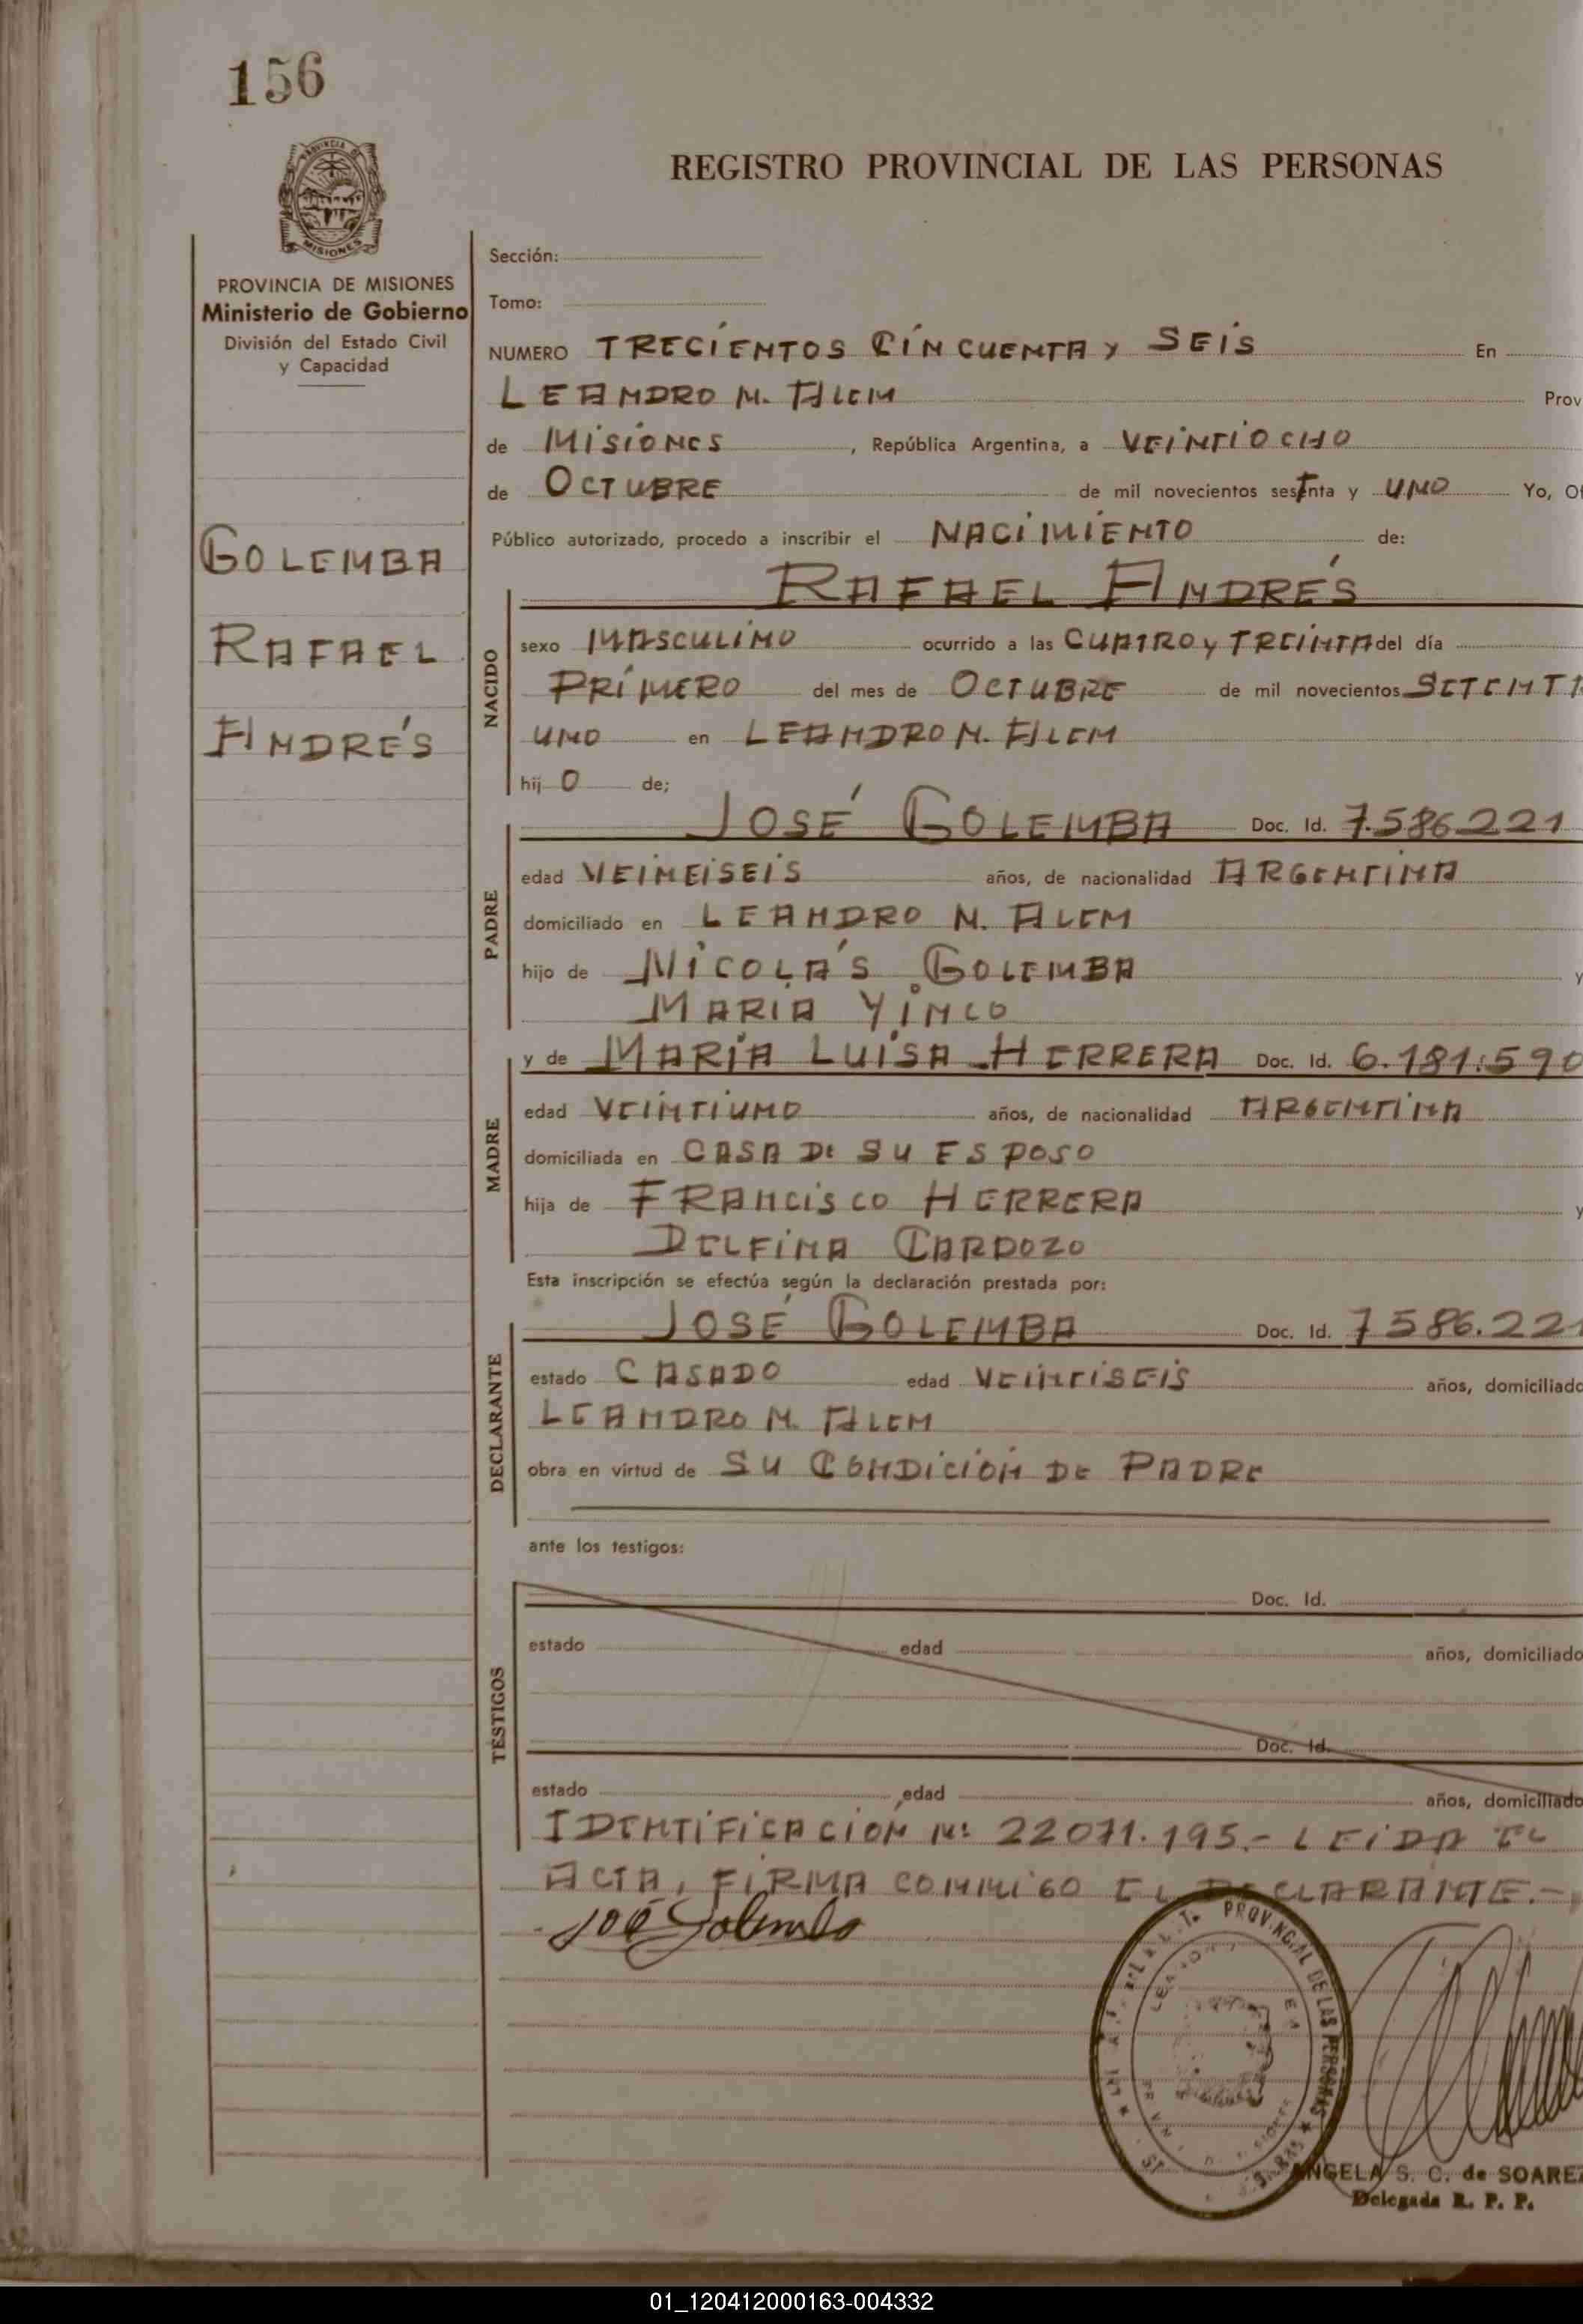 156
PROVINCIA DE
MISIONES
REGISTRO PROVINCIAL DE LAS PERSONAS
PROVINCIA DE MISIONES
Ministerio de Gobierno
División del Estado Civil
y Capacidad
GOLEMBA
RAFAEL
ANDRÉS
Sección:
Tomo:
NUMERO TRECIENTOS CINCUENTA Y SEIS En
LEANDRO N. ALEM Prov
de MISIONES, República Argentina, a VEINTIOCHO
de OCTUBRE de mil novecientos sesTnta y UNO Yo, Of
Público autorizado, procedo a inscribir el NACIMIENTO de:
RAFAEL ANDRÉS
NACIDO
sexo MASCULINO ocurrido a las CUATRO y TREINTA del día
PRIMERO del mes de OCTUBRE de mil novecientos SETENTA
UNO en LEANDRO N. ALEM
hij O de;
JOSÉ GOLEMBA Doc. Id. 7.586.221
PADRE
edad VEINEISEIS años, de nacionalidad ARGENTINA
domiciliado en LEANDRO N. ALEM
hijo de NICOLÁS GOLEMBA y
MARIA YINCO
y de MARÍA LUISA HERRERA Doc. Id. 6.181.590
MADRE
edad VEINTIUNO años, de nacionalidad ARGENTINA
domiciliada en CASA DE SU ESPOSO
hija de FRANCISCO HERRERA y
DELFINA CARDOZO
Esta inscripción se efectúa según la declaración prestada por:
JOSÉ GOLEMBA Doc. Id. 7586.221
DECLARANTE
estado CASADO edad VEINTISEIS años, domiciliado
LEANDRO N. ALEM
obra en virtud de SU CONDICIÓN DE PADRE
ante los testigos:
Doc. Id.
TESTIGOS
estado edad años, domiciliado
Doc. Id.
estado edad años, domiciliado
IDENTIFICACIÓN Nº 22071.195.- LEIDA EL
ACTA, FIRMA CONMIGO EL DECLARANTE.-
José Golemba
PROVINCIAL DE LAS PERSONAS
ANGELA S. C. de SOAREZ
Delegada R. P. P.
01_120412000163-004332